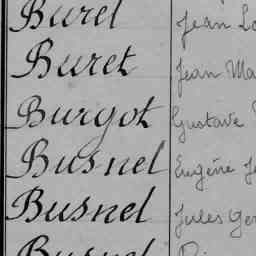 Burel Jean
Buret Jean
Burgot Gustave
Busnel Eugène
Busnel Jules
Busnel